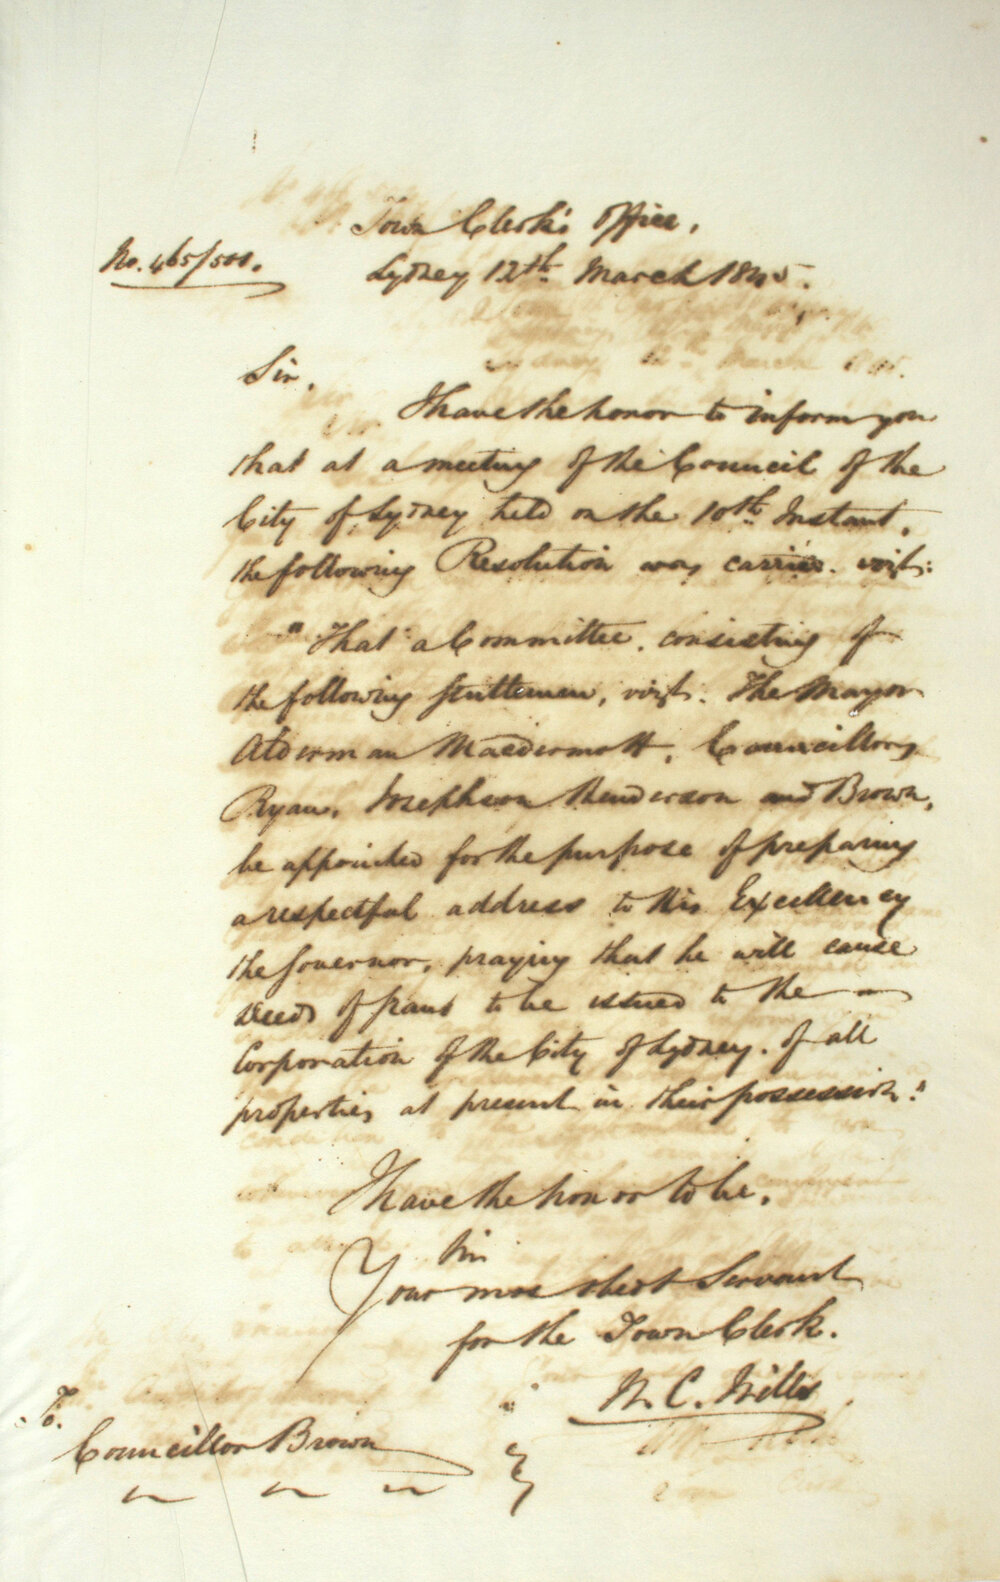 Town Clerk's Office,
No. 465/501.
Sydney 12th March 1845.
Sir,
I have the honor to inform you
that at a meeting of the Council of the
City of Sydney held on the 10th Instant,
the following Resolution was carried. vizt:
"That a Committee, consisting of
the following Gentlemen, vizt. The Mayor
Alderman Macdermott, Councillors
Ryan, Josephson Henderson and Brown,
be appointed for the purpose of preparing
a respectful address to His Excellency
the Governor, praying that he will cause
Deeds of Grant to be issued to the
Corporation of the City of Sydney. of all
properties at present in their possession."
I have the honor to be,
Sir
Your most obedt Servant
for the Town Clerk.
W. C. Wills
To.
Councillor Brown